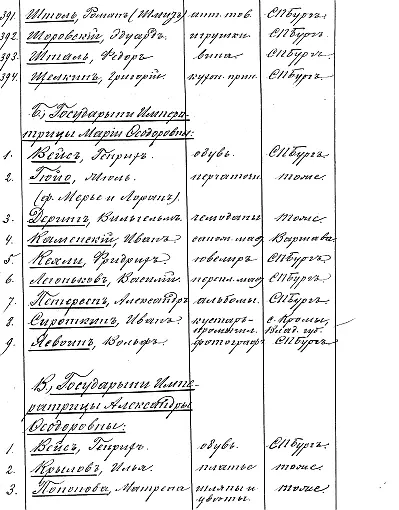 391. Штоль, Романъ (Шмузъ) апт. тов. СПбургъ.
392. Шоровскій, Эдуардъ. игрушки. СПбургъ.
393. Шталь, Ѳедоръ вина. СПбургъ.
394. Щелкинъ, Григорій. кухон. прин. СПбургъ.
Б, Государыни Импера-
трицы Маріи Ѳеодоровны:
1. Вейсъ, Генрихъ. обувь. СПбургъ.
2. Гюйо, Мюль. перчатки. тоже.
(ф. Мерье и Лоранъ).
3. Дерингъ, Вильгельмъ. чемоданы тоже.
4. Каменскій, Иванъ. сапож. маст. Варшава.
5. Кехли, Фридрихъ. ювелиръ СПбургъ.
6. Леоньковъ, Василій. перепл. маст. СПбургъ.
7. Петерсенъ, Александръ альбомы. СПбургъ.
8. Сироткинъ, Иванъ кустарь- с. Кромы,
промышл. Влад. губ.
9. Яевоинъ, Вольфъ. фотографъ СПбургъ
В, Государыни Импе-
ратрицы Александры
Ѳеодоровны:
1. Вейсъ, Генрихъ. обувь. СПбургъ.
2. Крыловъ, Илья. платье тоже.
3. Попонова, Матрена шляпы и тоже.
цвѣты.